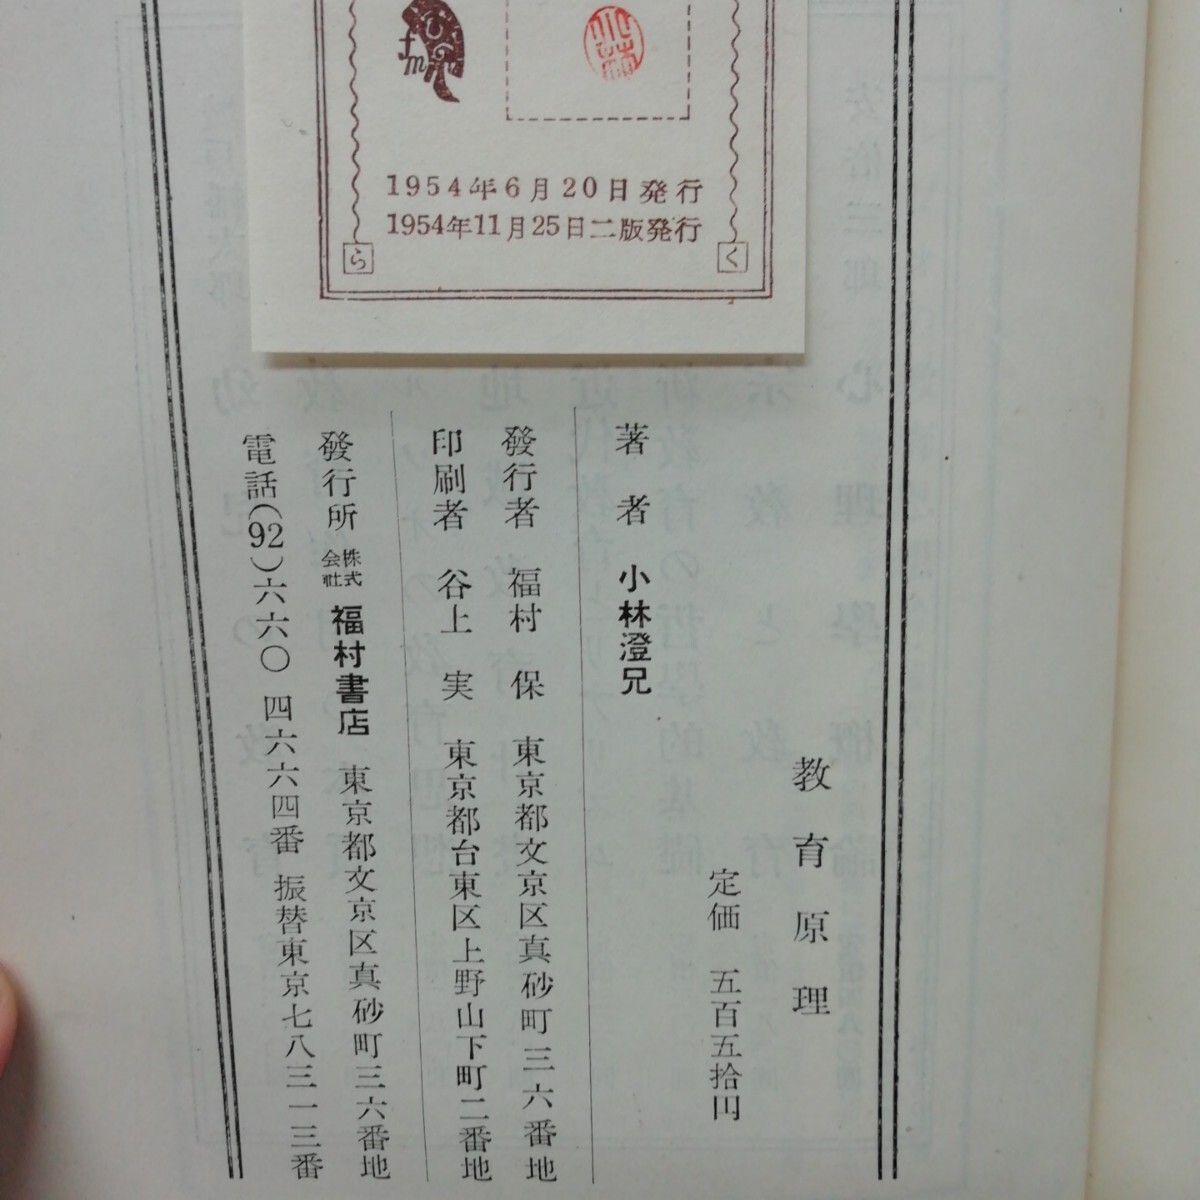 1954年6月20日発行
1954年11月25日二版発行
ら
く
教育原理
定価 五百五拾円
著者 小林澄兄
發行者 福村 保 東京都文京区真砂町三六番地
印刷者 谷上 実 東京都台東区上野山下町二番地
發行所 株式会社 福村書店 東京都文京区真砂町三六番地
電話(92)六六〇四六六四番 振替東京七八三一三番